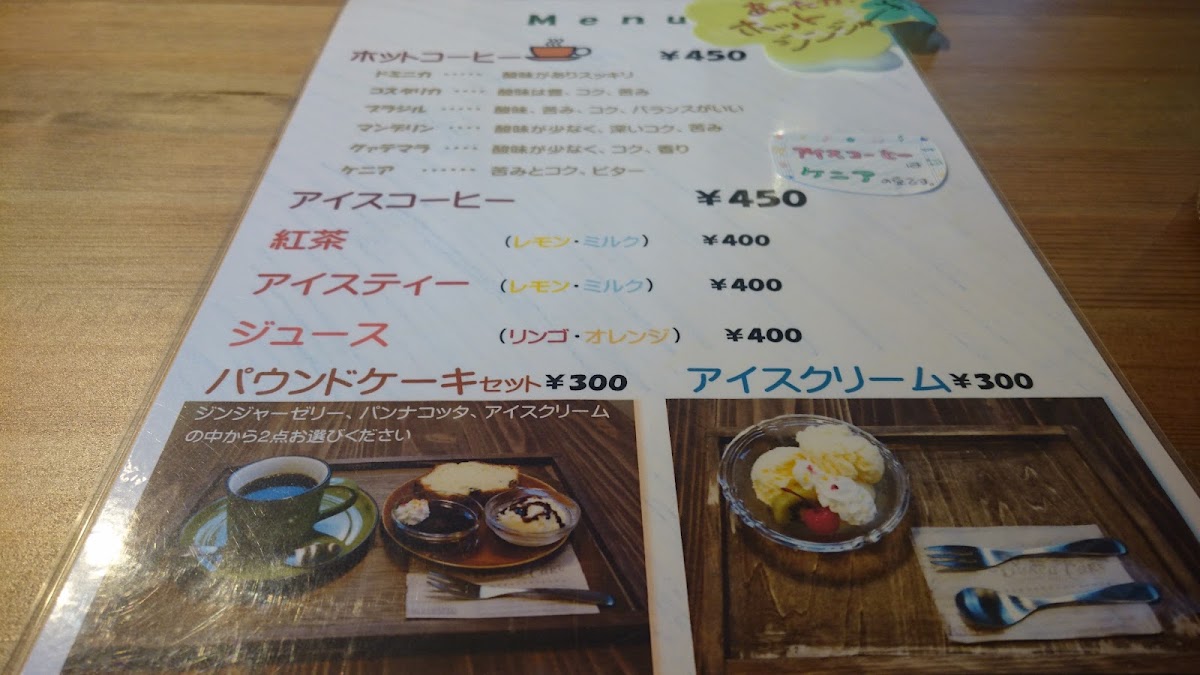 Menu
あったか
ホット
ジンジャー
ホットコーヒー ¥450
ドミニカ ····· 酸味がありスッキリ
コスタリカ ···· 酸味は豊、コク、苦み
ブラジル ····· 酸味、苦み、コク、バランスがいい
マンデリン ···· 酸味が少なく、深いコク、苦み
グァテマラ ····· 酸味が少なく、コク、香り
ケニア ······ 苦みとコク、ビター
アイスコーヒー
は
ケニア のみです。
アイスコーヒー ¥450
紅茶 (レモン・ミルク) ¥400
アイスティー (レモン・ミルク) ¥400
ジュース (リンゴ・オレンジ) ¥400
パウンドケーキセット ¥300
ジンジャーゼリー、パンナコッタ、アイスクリーム
の中から2点お選びください
アイスクリーム ¥300